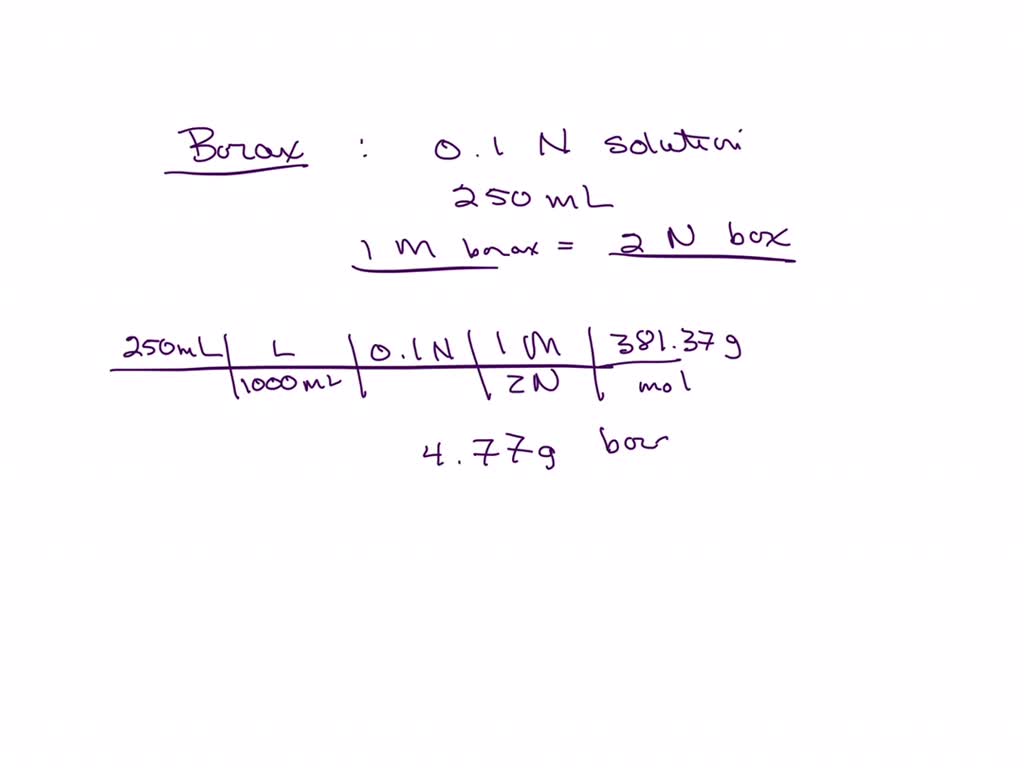 Borax : 0.1 N solution
250 mL
1 M borax = 2 N box
250mL | L | 0.1N | 1 M | 381.37 g
1000 mL | 2N | mol
4.77g bor